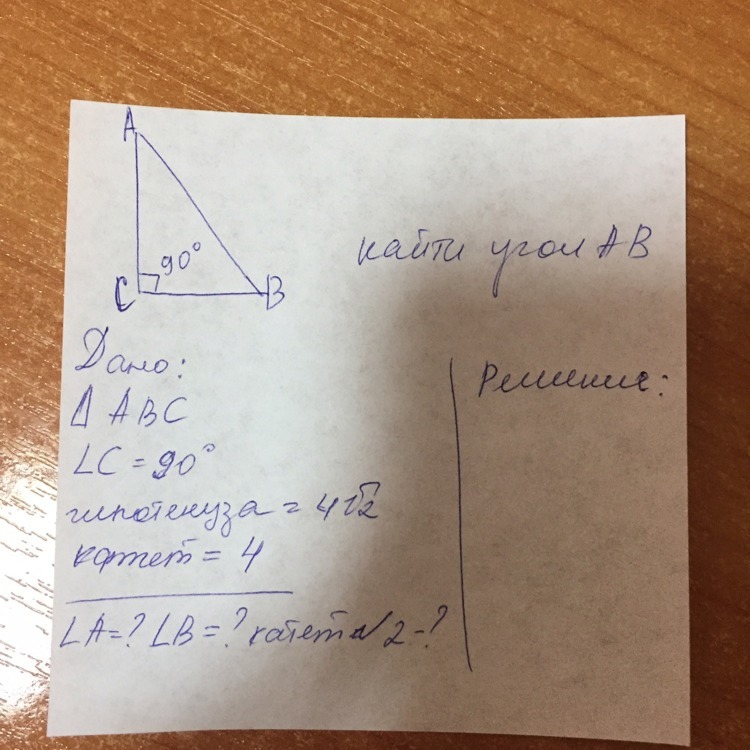 A
90°
C
B
найти угол AB
Дано:
Δ ABC
∠C = 90°
гипотенуза = 4√2
катет = 4
∠A = ? ∠B = ? катет №2 - ?
Решение: